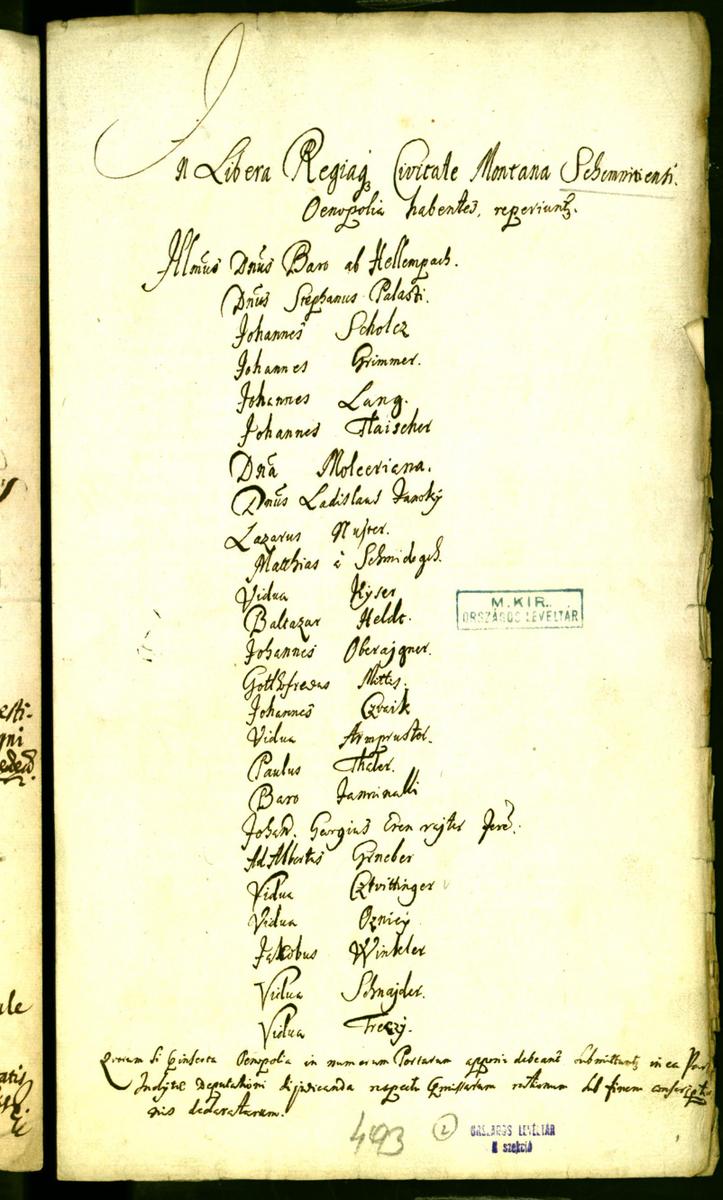 In Libera Regiaq Civitate Montana Schemnitiensi.
Oenopolia habentes, reperiunt.
Illmus Dnus Baro ab Hellempach.
Dnus Stephanus Palasti.
Johannes Scholcz
Johannes Grimmer.
Johannes Lang.
Johannes Flaischer
Dna Molceriana.
Dnus Ladislaus Janoky
Lazarus
Matthias à Schmidegch.
Vidua Kyser
Baltazar Heldt.
Johannes Oberajgner.
Gotthofredus Mittes.
Johannes Czvaik
Vidua Armpruster.
Paulus Thaler.
Baro
Johan. Georgius
Adalbertus Grueber
Vidua Cztvittinger
Vidua
Jakobus Winkler
Vidua Schnajder.
Vidua Treczj.
si Oenopolia in numerum Portarum apponi debeant submittunt in ea
Inclytae Deputationi dijudicanda respectu rationum sub finem conscriptio
nis declaratarum.
M. KIR.
ORSZÁGOS LEVÉLTÁR
493 2 ORSZÁGOS LEVÉLTÁR
szekció
esti-
gni
ale
atis